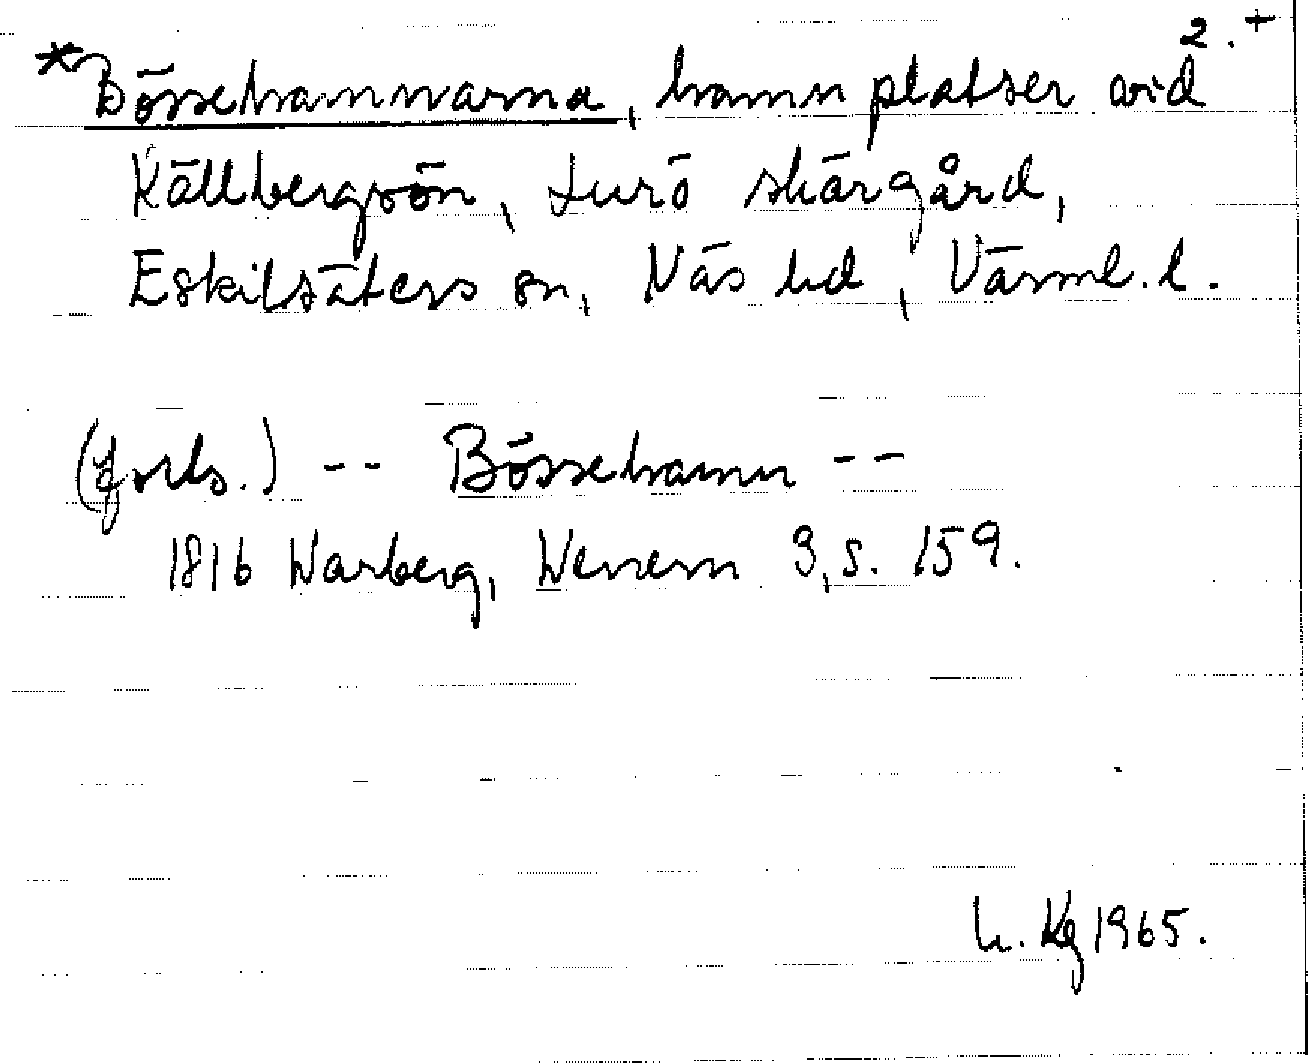 2. +
*Bössehamnarna, hamnplatser vid
Källbergsön, Lurö skärgård,
Eskilsäters sn, Näs hd, Värml. l.
(forts.) -- Bössehamn --
1816 Warberg, Wenern 3, s. 159.
L. Kg 1965.